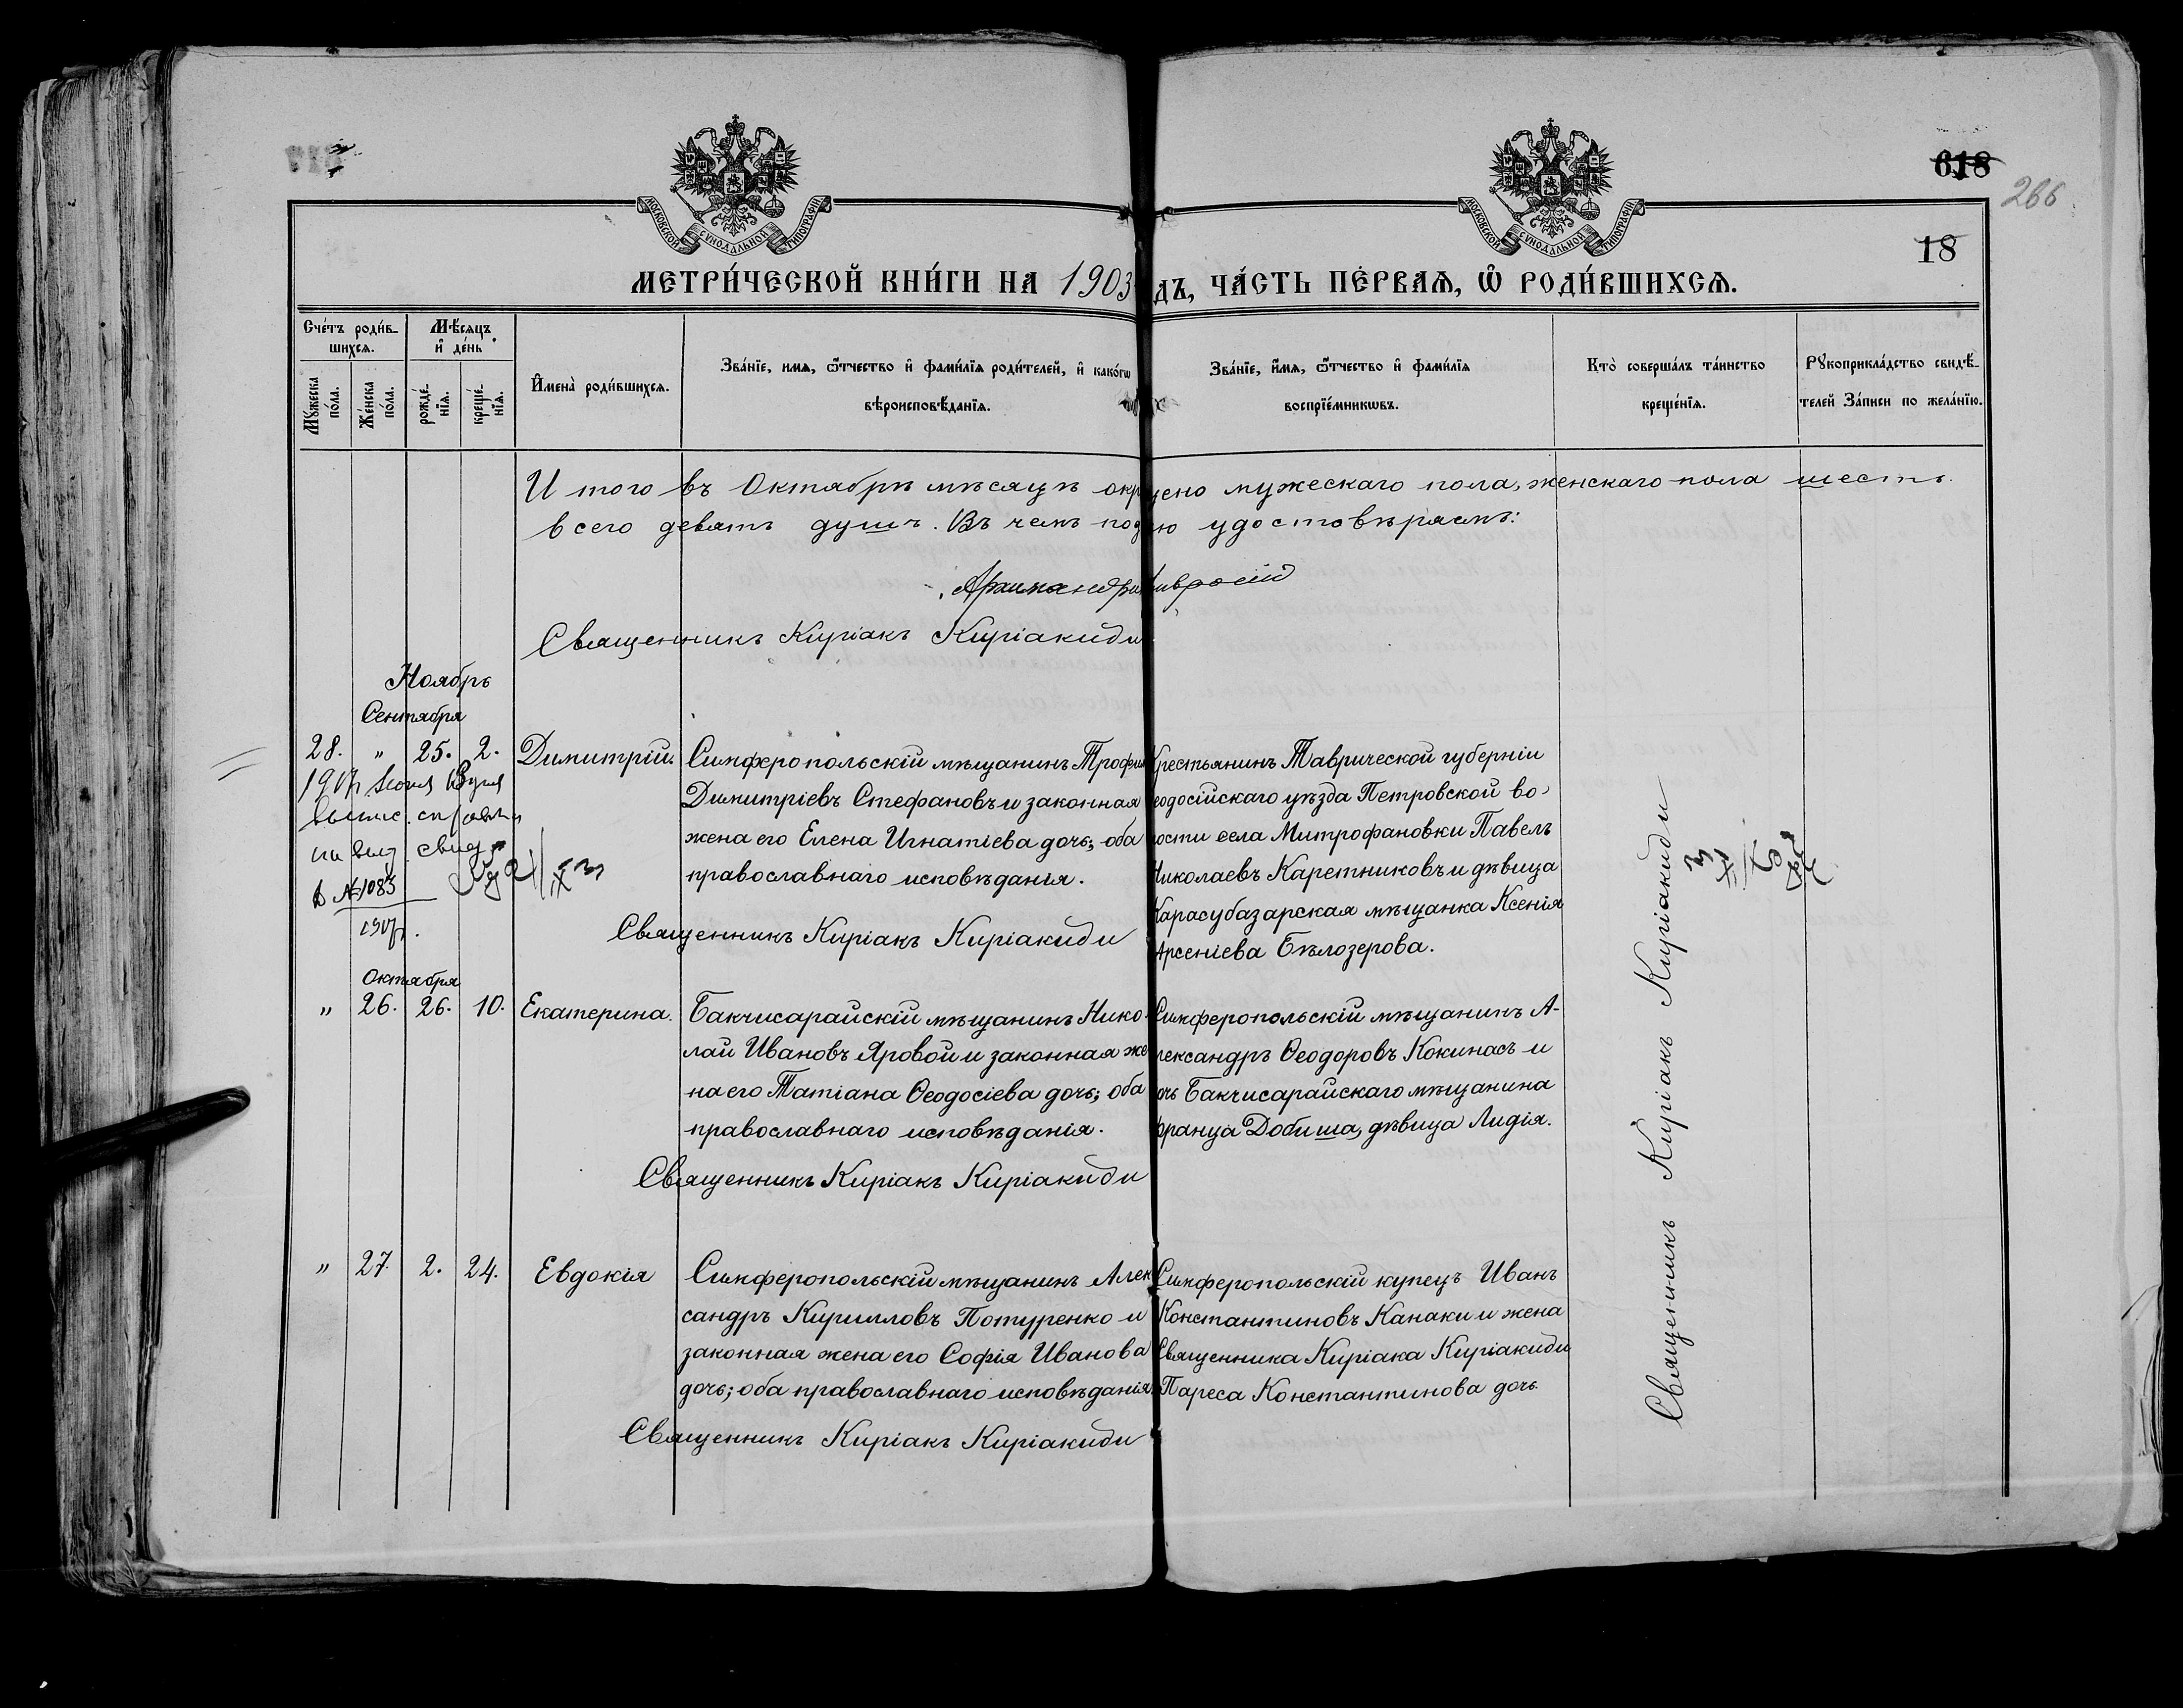 618
266
18
МОСКОВСКОЙ СѴНОДАЛЬНОЙ ТИПОГРАФІИ
МОСКОВСКОЙ СѴНОДАЛЬНОЙ ТИПОГРАФІИ
МЕТРИ́ЧЕСКОЙ КНИ́ГИ НА 1903 ДЪ, ЧА́СТЬ ПЕ́РВАѦ, Ѡ҆ РОДИ́ВШИХСѦ.
Сче́тъ роди́в-
шихсѧ.
Мꙋ́жеска по́ла.
Же́нска по́ла.
Мѣ́сѧцъ
и҆ де́нь
рожде́-
нїѧ.
креще́-
нїѧ.
И҆мена̀ роди́вшихсѧ.
Зва́нїе, имѧ, ѻ҆́тчество и҆ фами́лїѧ роди́телей, и҆ како́гѡ
вѣроисповѣ́данїѧ.
Зва́нїе, и҆́мѧ, ѻ҆́тчество и҆ фами́лїѧ
воспрїе́мникѡвъ.
Кто̀ соверша́лъ та́инство
креще́нїѧ.
Рꙋкоприкла́дство свидѣ́-
телей За́писи по жела́нїю.
И того въ Октябрѣ мѣсяцѣ окр щено мужескаго пола, женскаго пола шесть.
всего девять душъ. Въ чемъ под ю удостовѣряемъ:
Архимандри
Священникъ Киріакъ Киріакиди
Ноябрь
Сентября
28. " 25. 2. Димитрій. Симферопольскій мѣщанинъ Трофим
Димитріевъ Стефановъ и законная
жена его Елена Игнатіева дочь; оба
православнаго исповѣданія.
Священникъ Киріакъ Киріакиди
Крестьянинъ Таврической губерніи
еодосійскаго уѣзда Петровской во-
ости села Митрофановки Павелъ
Николаевъ Каретниковъ и дѣвица
Карасубазарская мѣщанка Ксенія
Арсеніева Бѣлозерова.
свид
№ 1083
Октября
" 26. 26. 10. Екатерина. Бакчисарайскій мѣщанинъ Нико-
лай Ивановъ Яровой и законная же
на его Татіана Ѳеодосіева дочь; оба
православнаго исповѣданія.
Священникъ Киріакъ Киріакиди
Симферопольскій мѣщанинъ А-
лександръ Ѳеодоровъ Кокинасъ и
очь Бакчисарайскаго мѣщанина
Франца Добиша, дѣвица Лидія.
" 27. 2. 24. Евдокія Симферопольскій мѣщанинъ Алек
сандръ Кирилловъ Потуренко и
законная жена его Софія Иванова
дочь; оба православнаго исповѣданія.
Священникъ Киріакъ Киріакиди
Симферопольскій купецъ Иванъ
Константиновъ Канаки и жена
Священника Киріака Киріакиди
Пареса Константинова дочь.
Священникъ Киріакъ Киріакиди